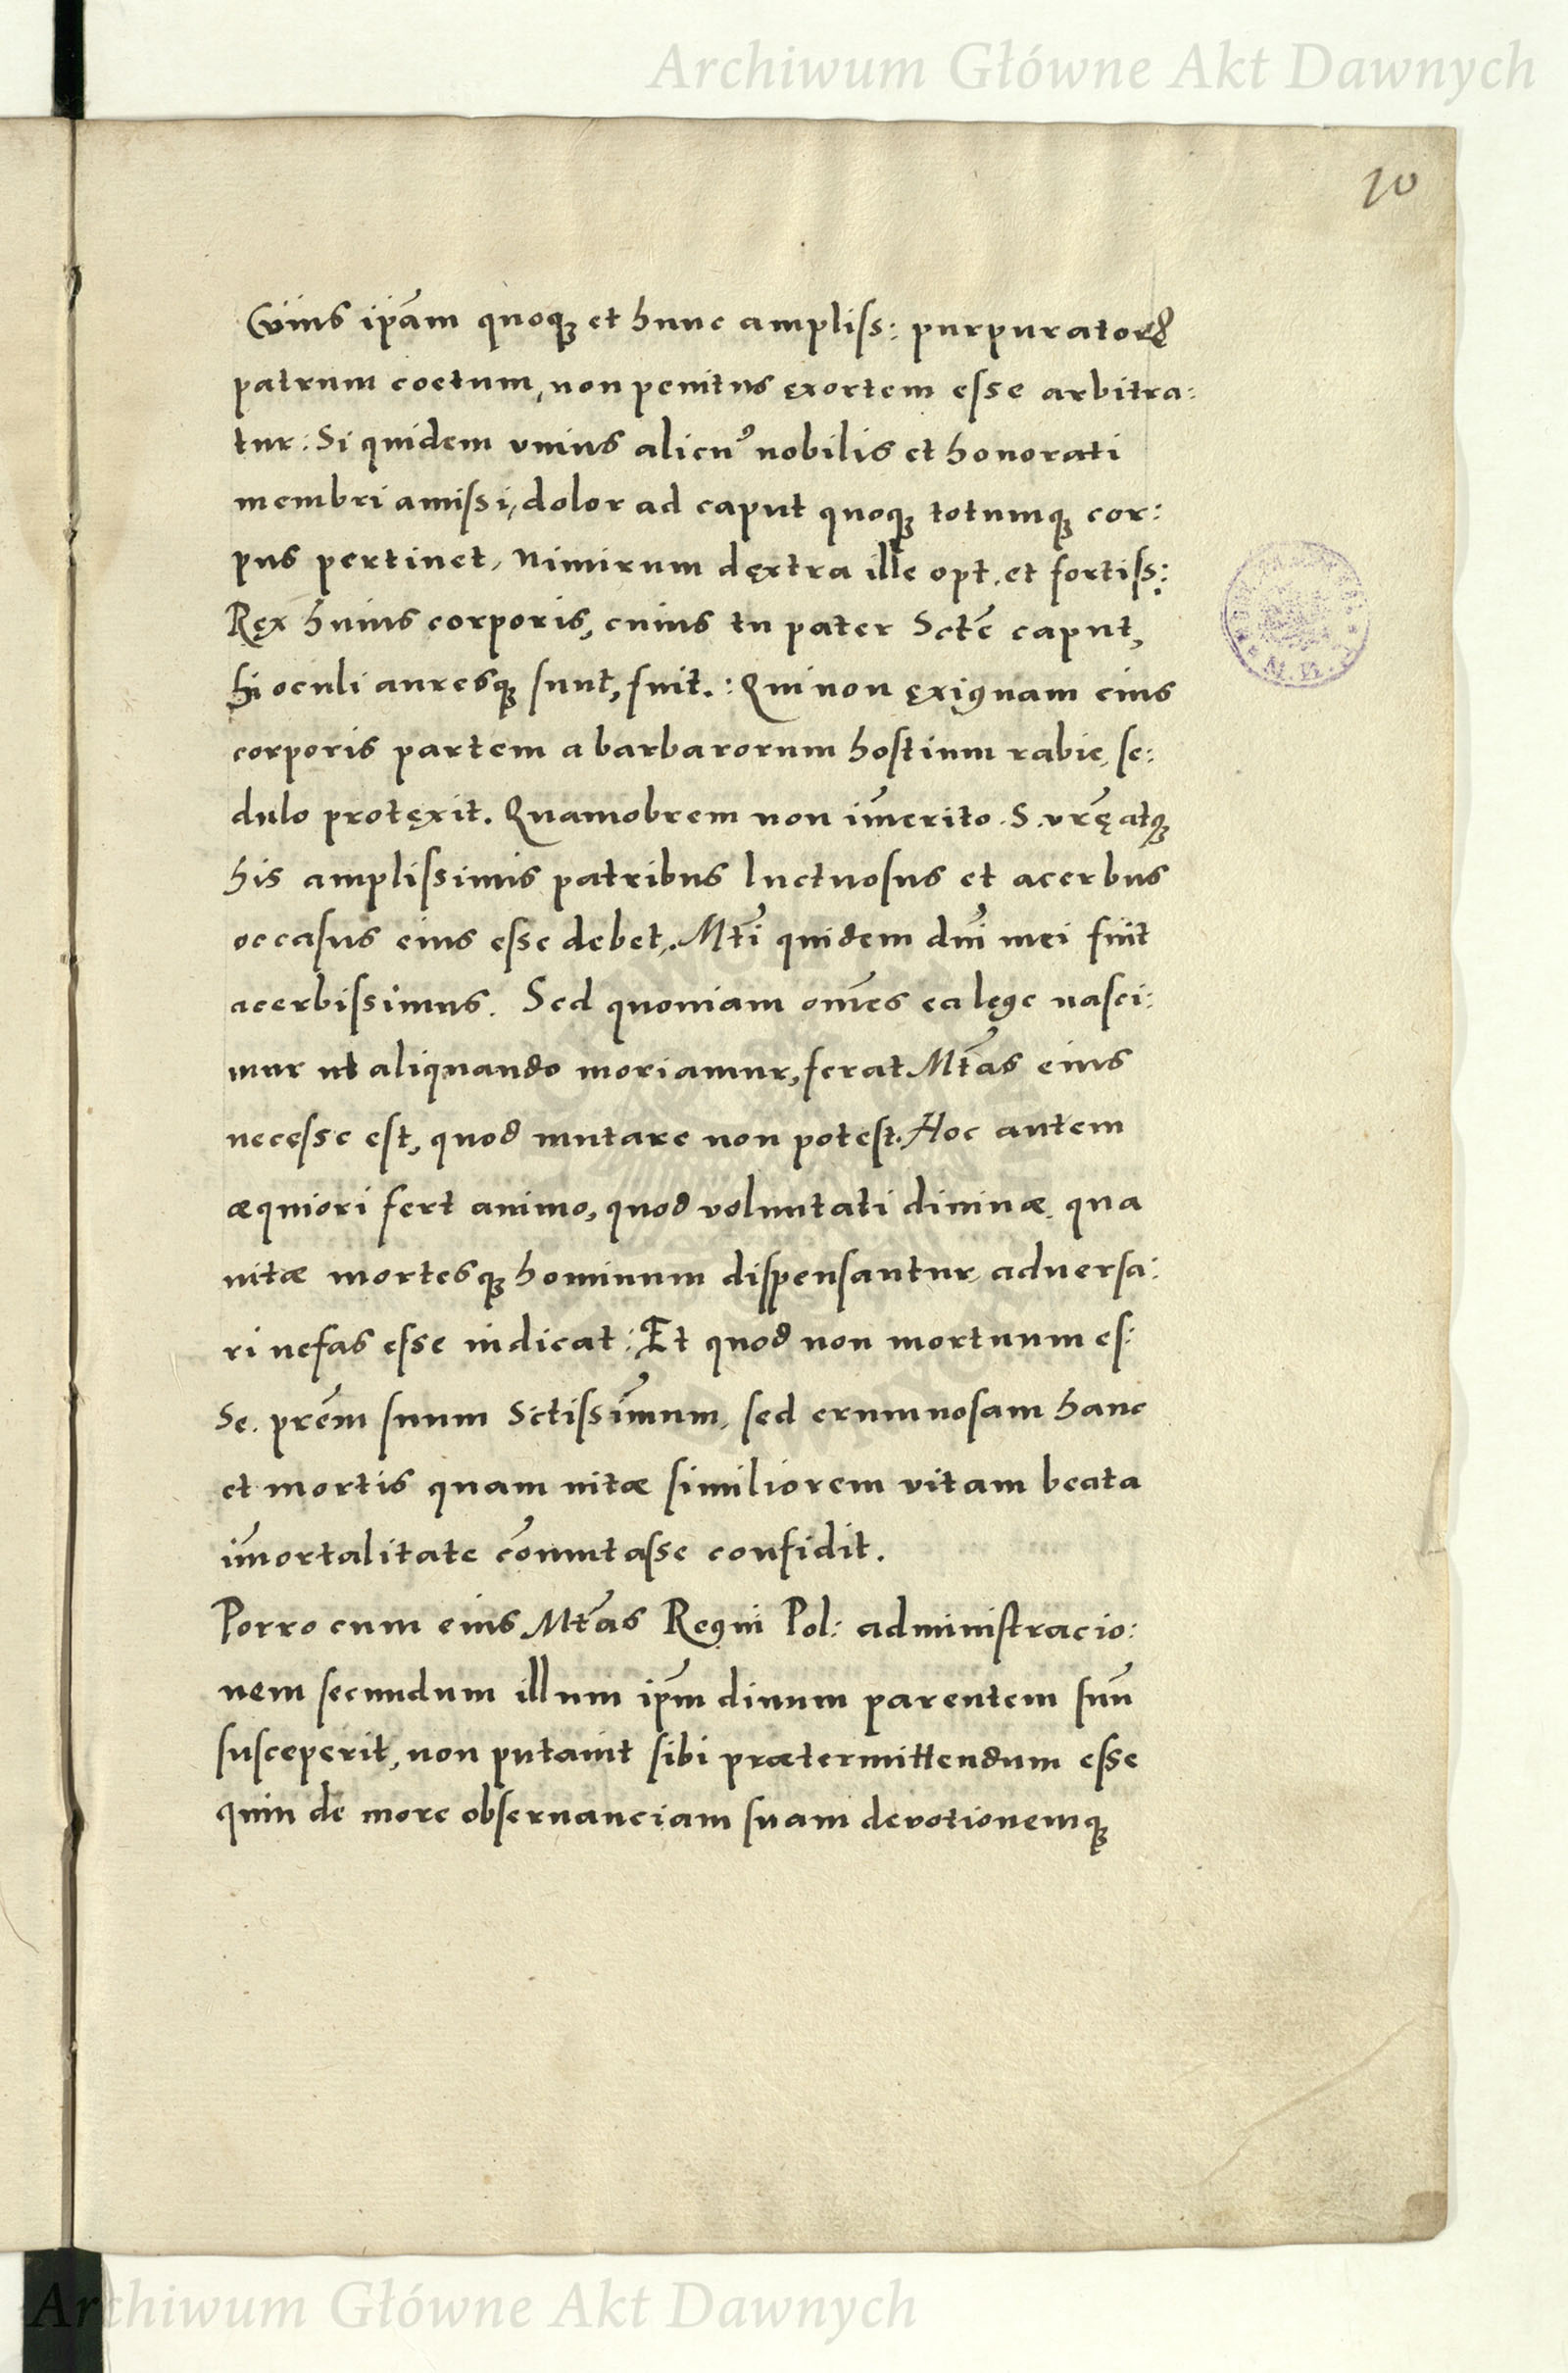 Archiwum Główne Akt Dawnych
10
Cuius ip̃am quoqꝫ et hunc ampliſs: purpuratorꝝ
patrum coetum, non penitus ęxortem eſse arbitra:
tur: Si quidem vnius alicuꝰ nobilis et honorati
membri amiſsi, dolor ad caput quoqꝫ totumqꝫ cor:
pus pertinet, Nimirum dęxtra ille opt. et fortiſs:
Ręx huius corporis, cuius tu pater Sctẽ caput,
hi oculi auresqꝫ ſunt, fuit.: Qui non ęxiguam eius
corporis partem a barbarorum hoſtium rabie, ſe:
dulo protęxit. Quamobrem non im̃erito. S. vrę̃ atqꝫ
his ampliſsimis patribus luctuoſus et acerbus
occaſus eius eſse debet,. Mtĩ quidem dnĩ mei fuit
acerbiſsimus. Sed quoniam om̃es ea lęge naſci:
mur ut aliquando moriamur, ferat Mtãs eius
neceſse eſt, quod mutare non poteſt. Hoc autem
æquiori fert animo, quod voluntati diuinæ, qua
uitæ mortesqꝫ hominum diſpenſantur, aduerſa:
ri nefas eſse iudicat: Et quod non mortuum eſ:
se. prẽm ſuum Sctiſsim̃um, ſed erumnoſam hanc
et mortis quam uitæ ſimiliorem vitam beata
im̃ortalitate com̃utaſse confidit.
Porro cum eius Mtãs Regni Pol: adminiſtracio:
nem ſecundum illum ip̃m diuum parentem ſuũ
ſuſceperit, non putauit ſibi prætermittendum eſse
quin de more obſeruanciam ſuam devotionemqꝫ
Archiwum Główne Akt Dawnych